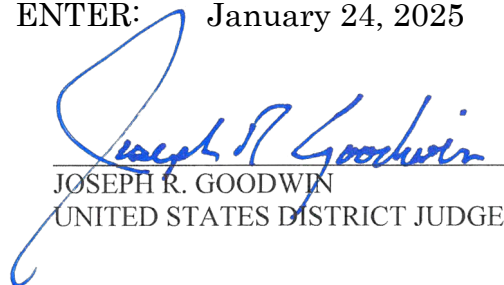 ENTER: January 24, 2025
Joseph R Goodwin
JOSEPH R. GOODWIN
UNITED STATES DISTRICT JUDGE